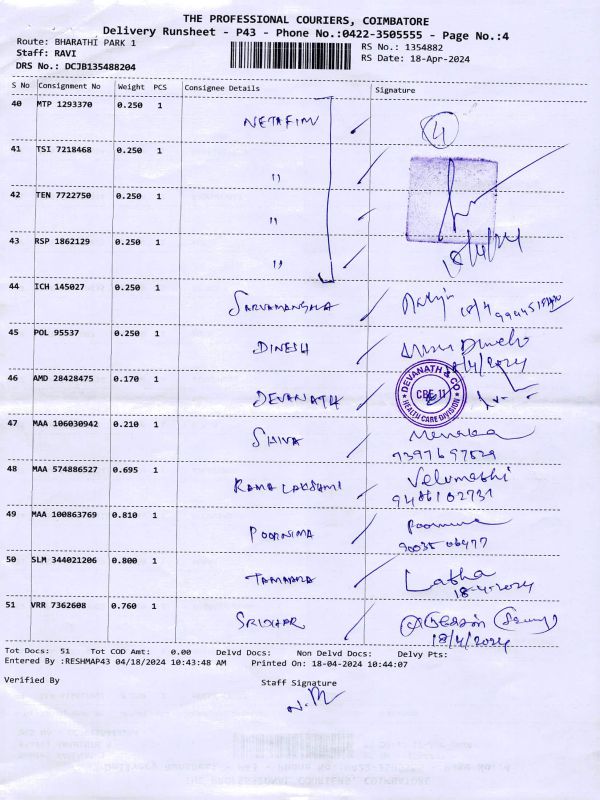 THE PROFESSIONAL COURIERS, COIMBATORE
Delivery Runsheet - P43 - Phone No.:0422-3505555 - Page No.:4
Route: BHARATHI PARK 1
RS No.: 1354882
Staff: RAVI
RS Date: 18-Apr-2024
DRS No.: DCJB135488204
S No Consignment No Weight PCS Consignee Details Signature
40 MTP 1293370 0.250 1 NETAFIM 4
41 TSI 7218468 0.250 1 "
42 TEN 7722750 0.250 1 "
43 RSP 1862129 0.250 1 " 18/4/24
44 ICH 145027 0.250 1 SARVAMANGALA 18/4
45 POL 95537 0.250 1 DINESH
18/4/2024
46 AMD 28428475 0.170 1 DEVANATH DEVANATH & CO CBE 11 HEALTH CARE DIVISION
47 MAA 106030942 0.210 1 SHIVA Menaka
9397697529
48 MAA 574886527 0.695 1 RAMA LAKSHMI Velumathi
9486102731
49 MAA 100863769 0.810 1 POORNIMA Poornima
9003506477
50 SLM 344021206 0.800 1 TAMARA Latha
18-4-2024
51 VRR 7362608 0.760 1 SRIDHAR
18/4/2024
Tot Docs: 51 Tot COD Amt: 0.00 Delvd Docs: Non Delvd Docs: Delvy Pts:
Entered By :RESHMAP43 04/18/2024 10:43:48 AM Printed On: 18-04-2024 10:44:07
Verified By Staff Signature